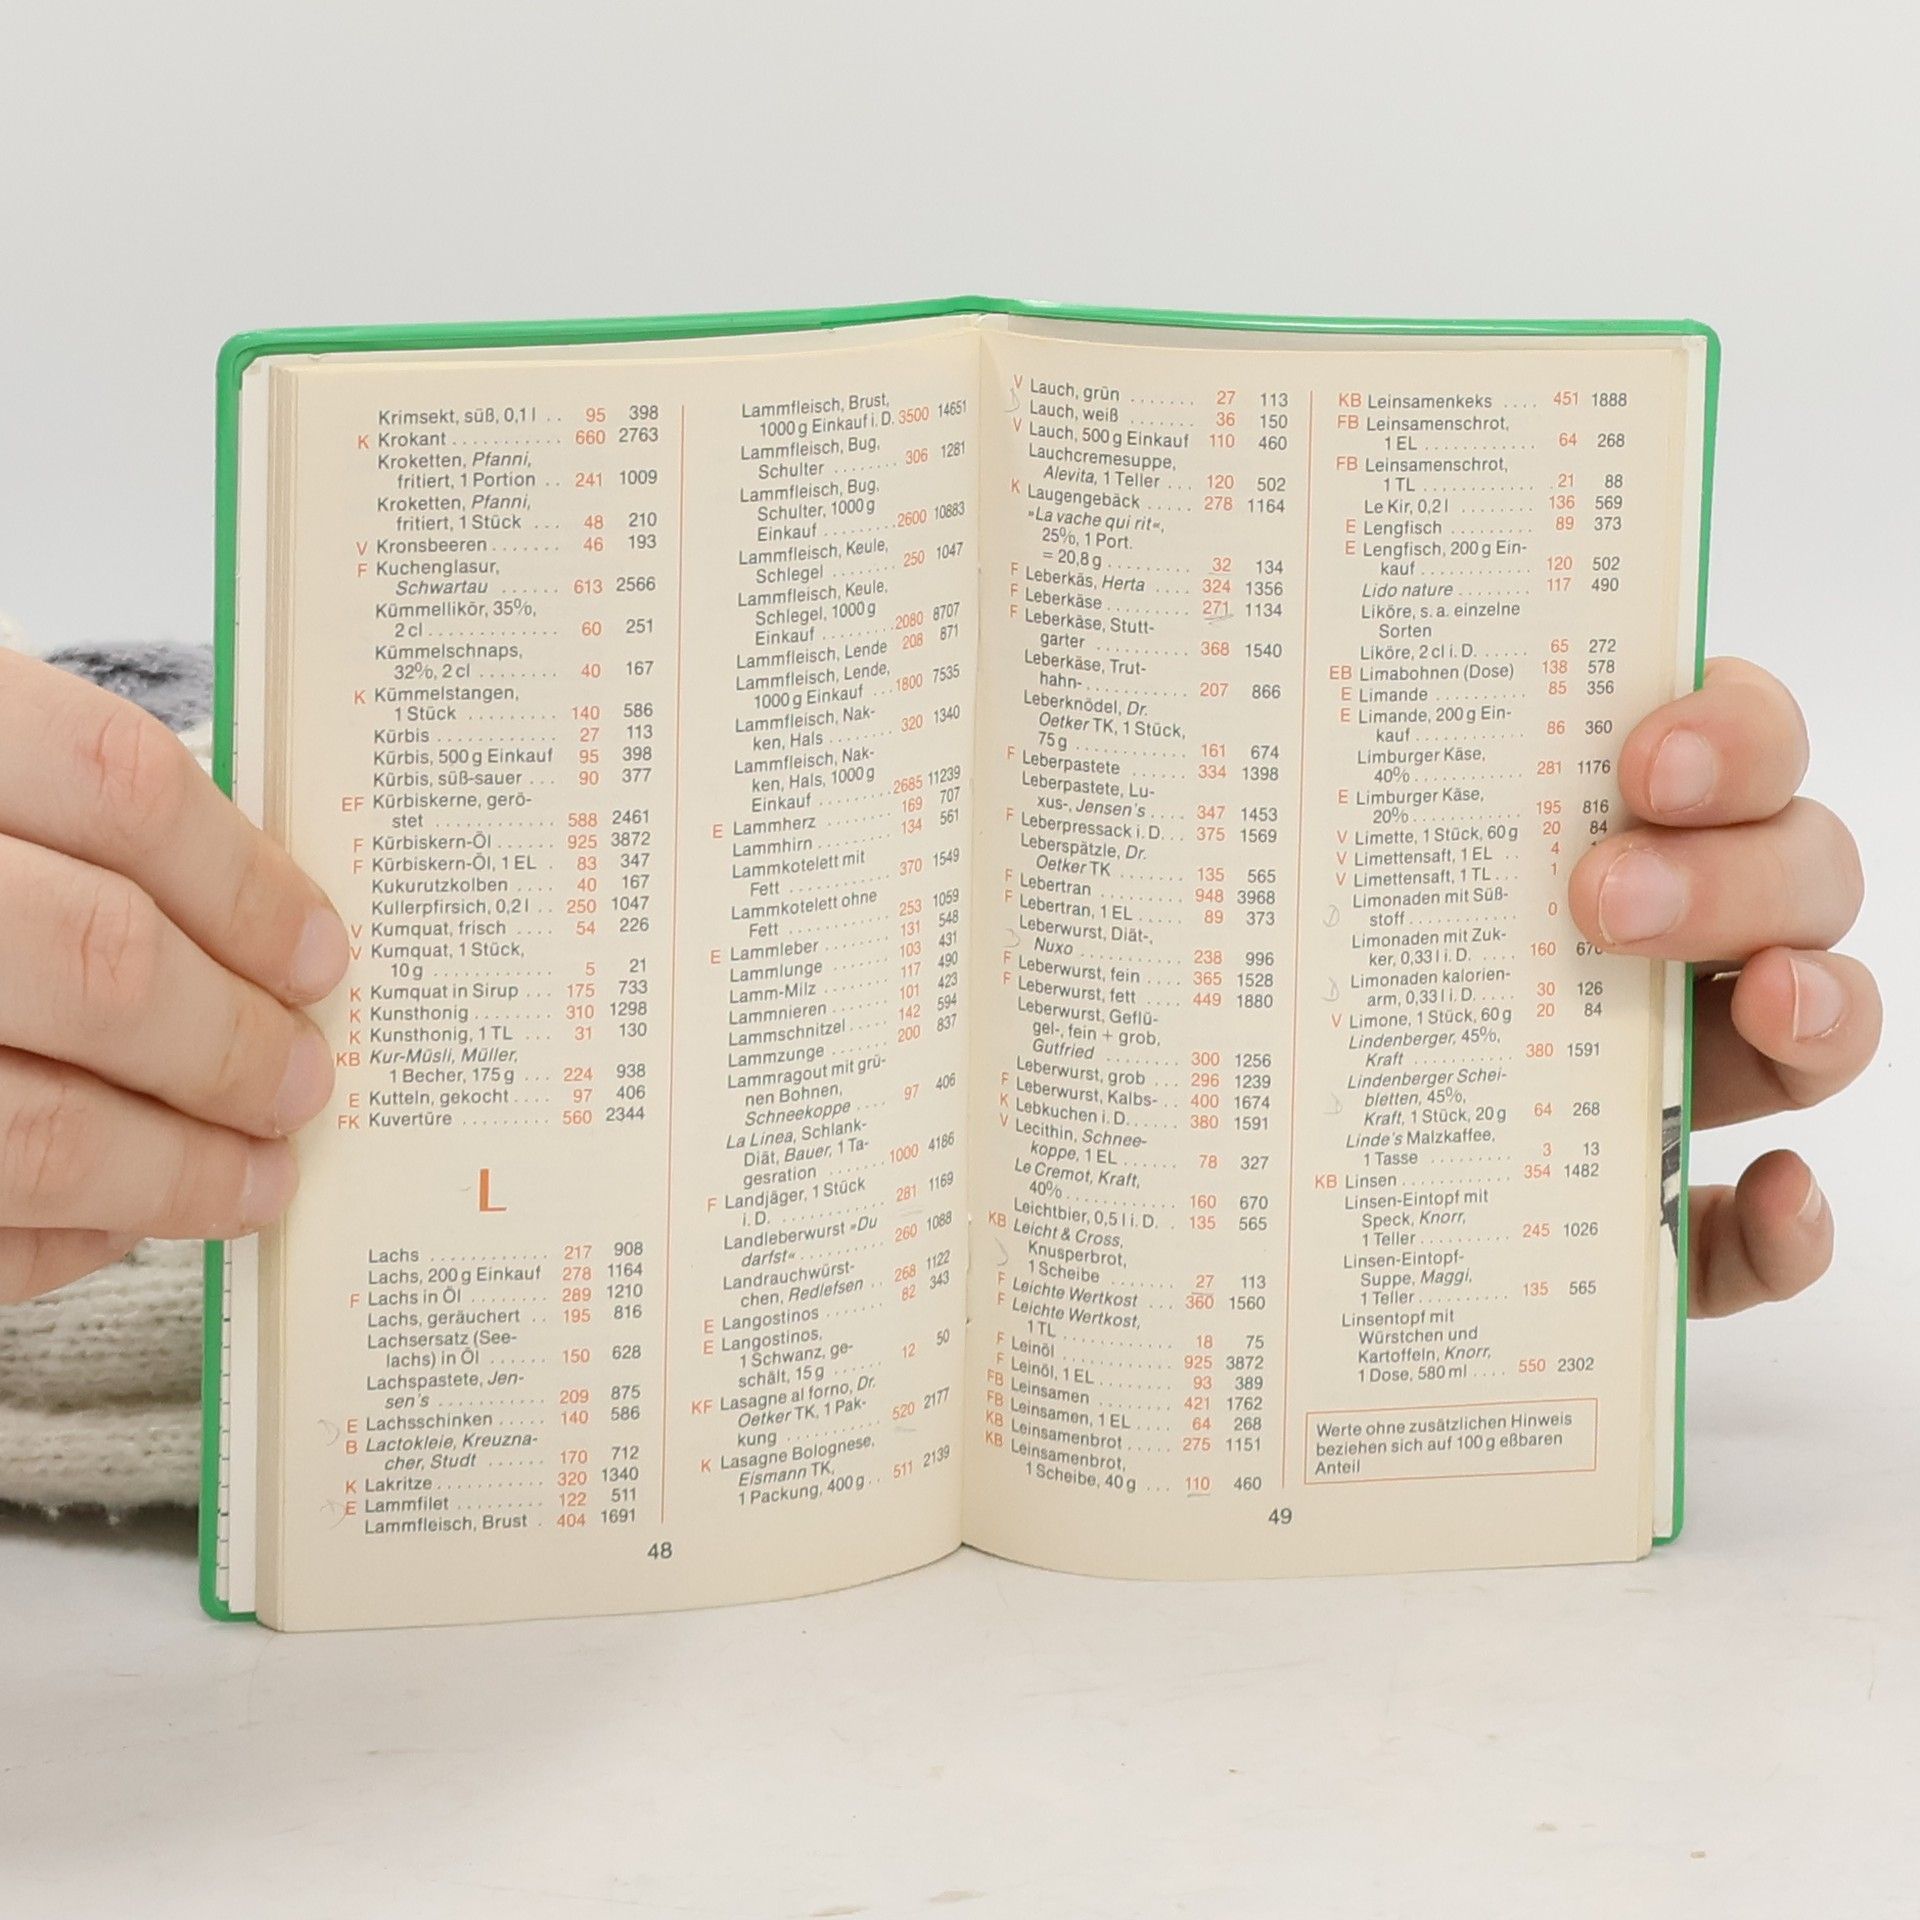 Krimsekt, süß, 0,1 l .. 95 398
K Krokant ........... 660 2763
Kroketten, Pfanni,
fritiert, 1 Portion .. 241 1009
Kroketten, Pfanni,
fritiert, 1 Stück ... 48 210
V Kronsbeeren ....... 46 193
F Kuchenglasur,
Schwartau ...... 613 2566
Kümmellikör, 35%,
2 cl ............. 60 251
Kümmelschnaps,
32%, 2 cl ........ 40 167
K Kümmelstangen,
1 Stück ......... 140 586
Kürbis ............ 27 113
Kürbis, 500 g Einkauf 95 398
Kürbis, süß-sauer ... 90 377
EF Kürbiskerne, gerö-
stet ............ 588 2461
F Kürbiskern-Öl ...... 925 3872
F Kürbiskern-Öl, 1 EL . 83 347
Kukurutzkolben .... 40 167
Kullerpfirsich, 0,2 l .. 250 1047
V Kumquat, frisch .... 54 226
V Kumquat, 1 Stück,
10 g ............ 5 21
K Kumquat in Sirup ... 175 733
K Kunsthonig ........ 310 1298
K Kunsthonig, 1 TL ... 31 130
KB Kur-Müsli, Müller,
1 Becher, 175 g ... 224 938
E Kutteln, gekocht .... 97 406
FK Kuvertüre ......... 560 2344
L
Lachs ............ 217 908
Lachs, 200 g Einkauf 278 1164
F Lachs in Öl ........ 289 1210
Lachs, geräuchert .. 195 816
Lachsersatz (See-
lachs) in Öl ...... 150 628
Lachspastete, Jen-
sen's ........... 209 875
E Lachsschinken ..... 140 586
B Lactokleie, Kreuzna-
cher, Studt ...... 170 712
K Lakritze ........... 320 1340
E Lammfilet ......... 122 511
Lammfleisch, Brust . 404 1691
48
Lammfleisch, Brust,
1000 g Einkauf i. D. 3500 14651
Lammfleisch, Bug,
Schulter ........ 306 1281
Lammfleisch, Bug,
Schulter, 1000 g
Einkauf ........ 2600 10883
Lammfleisch, Keule,
Schlegel ........ 250 1047
Lammfleisch, Keule,
Schlegel, 1000 g
Einkauf ........ 2080 8707
Lammfleisch, Lende 208 871
Lammfleisch, Lende,
1000 g Einkauf ... 1800 7535
Lammfleisch, Nak-
ken, Hals ........ 320 1340
Lammfleisch, Nak-
ken, Hals, 1000 g
Einkauf ........ 2685 11239
E Lammherz ........ 169 707
Lammhirn ......... 134 561
Lammkotelett mit
Fett ............ 370 1549
Lammkotelett ohne
Fett ............ 253 1059
E Lammleber ........ 131 548
Lammlunge ....... 103 431
Lamm-Milz ........ 117 490
Lammnieren ....... 101 423
Lammschnitzel ..... 142 594
Lammzunge ....... 200 837
Lammragout mit grü-
nen Bohnen,
Schneekoppe .... 97 406
La Linea, Schlank-
Diät, Bauer, 1 Ta-
gesration ........ 1000 4186
F Landjäger, 1 Stück
i. D. ............ 281 1169
Landleberwurst »Du
darfst« .......... 260 1088
Landrauchwürst-
chen, Redlefsen .. 268 1122
E Langostinos ....... 82 343
E Langostinos,
1 Schwanz, ge-
schält, 15 g ...... 12 50
KF Lasagne al forno, Dr.
Oetker TK, 1 Pak-
kung ........... 520 2177
K Lasagne Bolognese,
Eismann TK,
1 Packung, 400 g .. 511 2139
V Lauch, grün ....... 27 113
Lauch, weiß ....... 36 150
V Lauch, 500 g Einkauf 110 460
Lauchcremesuppe,
Alevita, 1 Teller ... 120 502
K Laugengebäck ..... 278 1164
»La vache qui rit«,
25%, 1 Port.
= 20,8 g ......... 32 134
F Leberkäs, Herta .... 324 1356
F Leberkäse ......... 271 1134
F Leberkäse, Stutt-
garter .......... 368 1540
Leberkäse, Trut-
hahn- ........... 207 866
Leberknödel, Dr.
Oetker TK, 1 Stück,
75 g ............ 161 674
F Leberpastete ...... 334 1398
Leberpastete, Lu-
xus-, Jensen's .... 347 1453
F Leberpressack i. D. .. 375 1569
Leberspätzle, Dr.
Oetker TK ....... 135 565
F Lebertran ......... 948 3968
F Lebertran, 1 EL ..... 89 373
Leberwurst, Diät-,
Nuxo ........... 238 996
F Leberwurst, fein .... 365 1528
F Leberwurst, fett .... 449 1880
Leberwurst, Geflü-
gel-, fein + grob,
Gutfried ........ 300 1256
Leberwurst, grob ... 296 1239
F Leberwurst, Kalbs- .. 400 1674
K Lebkuchen i. D. ..... 380 1591
V Lecithin, Schnee-
koppe, 1 EL ...... 78 327
Le Cremot, Kraft,
40% ............ 160 670
Leichtbier, 0,5 l i. D. . 135 565
KB Leicht & Cross,
Knusperbrot,
1 Scheibe ....... 27 113
F Leichte Wertkost ... 360 1560
F Leichte Wertkost,
1 TL ............ 18 75
F Leinöl ............ 925 3872
F Leinöl, 1 EL ........ 93 389
FB Leinsamen ........ 421 1762
FB Leinsamen, 1 EL .... 64 268
KB Leinsamenbrot ..... 275 1151
KB Leinsamenbrot,
1 Scheibe, 40 g ... 110 460
49
KB Leinsamenkeks .... 451 1888
FB Leinsamenschrot,
1 EL ............ 64 268
FB Leinsamenschrot,
1 TL ............ 21 88
Le Kir, 0,2 l ........ 136 569
E Lengfisch ......... 89 373
E Lengfisch, 200 g Ein-
kauf ............ 120 502
Lido nature ........ 117 490
Liköre, s. a. einzelne
Sorten
Liköre, 2 cl i. D. ...... 65 272
EB Limabohnen (Dose) 138 578
E Limande .......... 85 356
E Limande, 200 g Ein-
kauf ............ 86 360
Limburger Käse,
40% ............ 281 1176
E Limburger Käse,
20% ............ 195 816
V Limette, 1 Stück, 60 g 20 84
V Limettensaft, 1 EL .. 4
V Limettensaft, 1 TL ... 1
Limonaden mit Süß-
stoff ............ 0
Limonaden mit Zuk-
ker, 0,33 l i. D. .... 160
Limonaden kalorien-
arm, 0,33 l i. D. ..... 30 126
V Limone, 1 Stück, 60 g 20 84
Lindenberger, 45%,
Kraft ........... 380 1591
Lindenberger Schei-
bletten, 45%,
Kraft, 1 Stück, 20 g 64 268
Linde's Malzkaffee,
1 Tasse ......... 3 13
KB Linsen ............ 354 1482
Linsen-Eintopf mit
Speck, Knorr,
1 Teller .......... 245 1026
Linsen-Eintopf-
Suppe, Maggi,
1 Teller .......... 135 565
Linsentopf mit
Würstchen und
Kartoffeln, Knorr,
1 Dose, 580 ml .... 550 2302
Werte ohne zusätzlichen Hinweis
beziehen sich auf 100 g eßbaren
Anteil